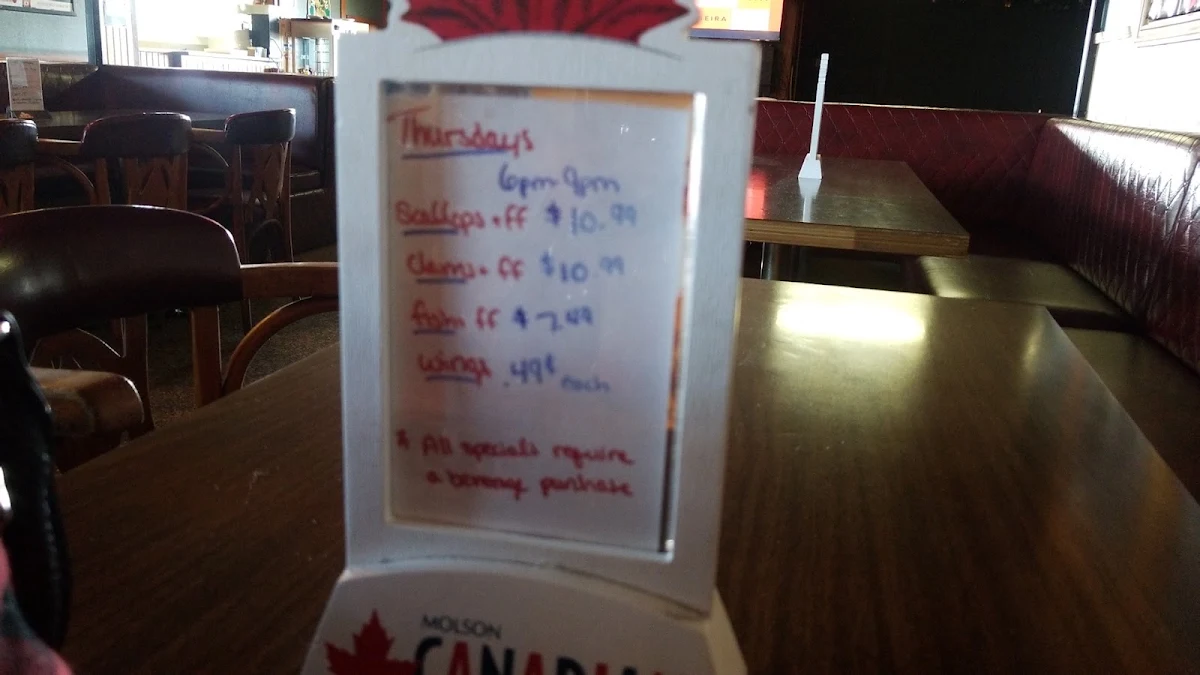 Thursdays
6pm-9pm
Scallops + ff $10.99
Clams + ff $10.99
fish ff $7.49
wings .49¢ each
* All specials require
a beverage purchase
MOLSON
CANADIAN
EIRA